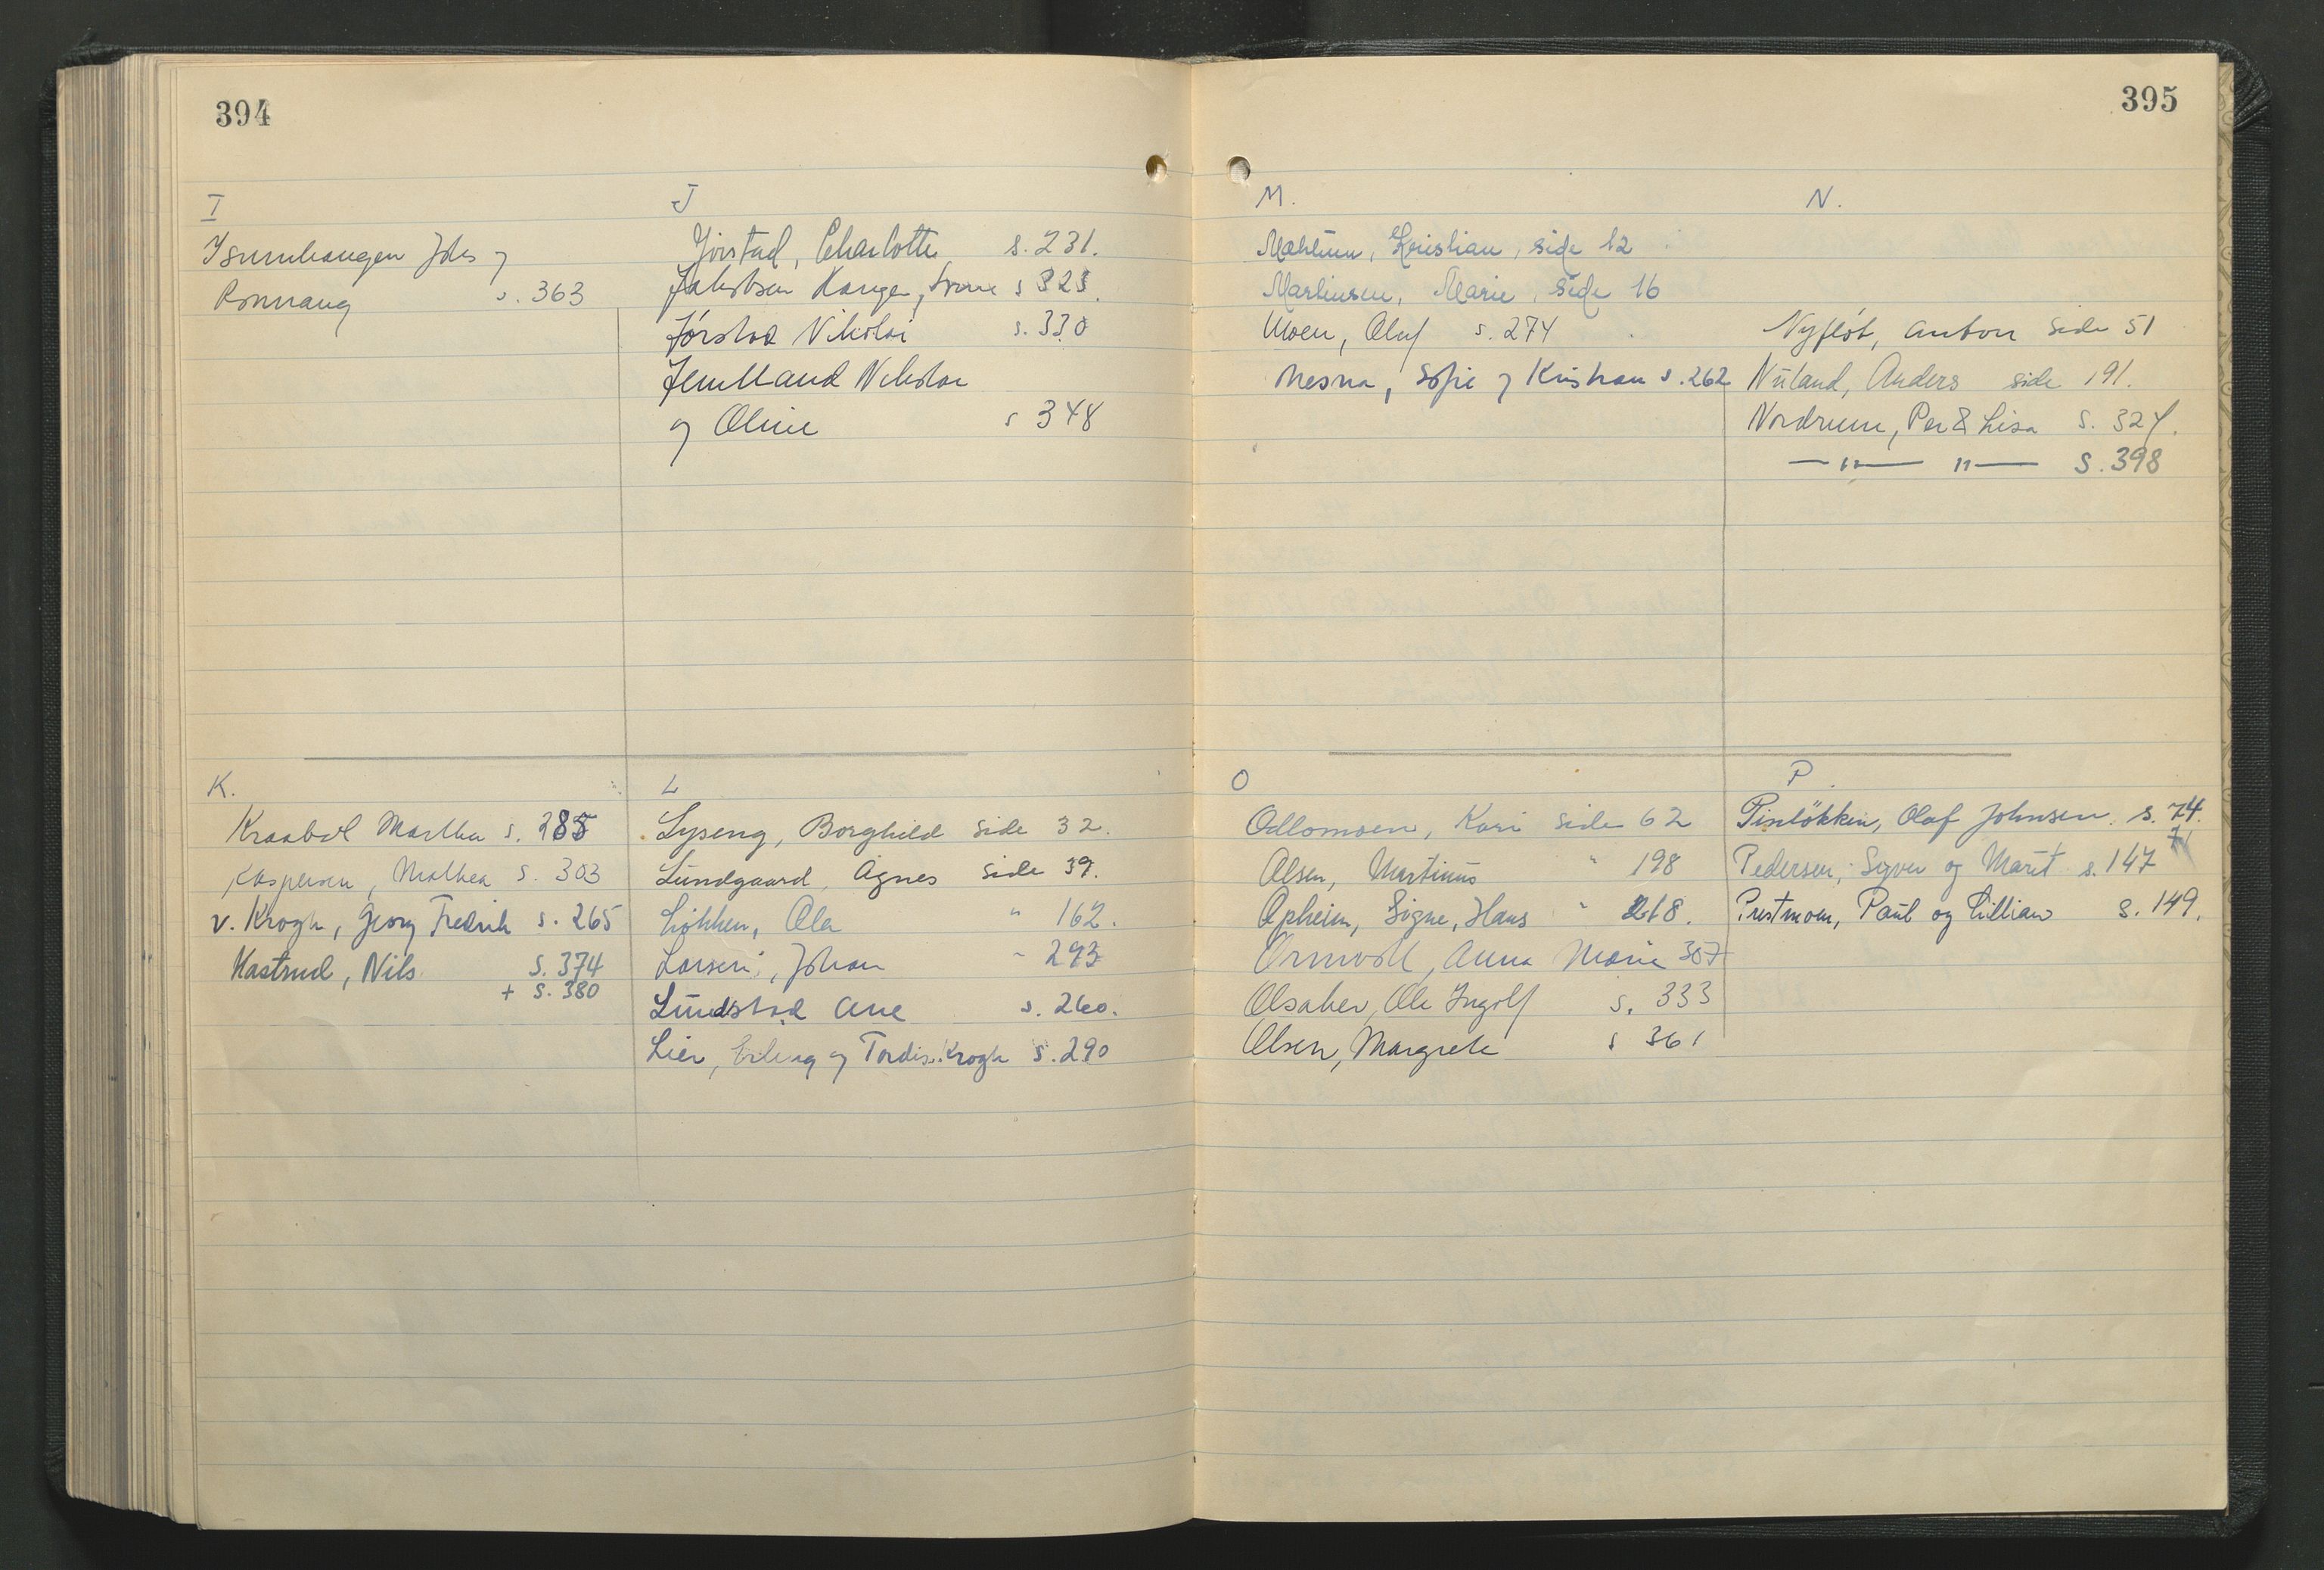 394
I
Isumhaugen Johs og
Ronnaug s. 363
J
Jørstad, Charlotte s. 231.
Jakobsen Kange, s 323.
Jørstad Nikolai s. 330
Jemtland Nikolai
og Oline s 348
K.
Kraabøl Marthea s. 285
Kaspersen, Mathea s. 303
v. Krogh, Georg Fredrik s. 265
Kastrud, Nils s. 374
+ s. 380
L
Lyseng, Borghild side 32.
Lundgaard, Agnes side 39.
Løkken, Ola " 162.
Larsen, Johan " 293
Lundstad Ane s. 260.
Lier, Erling og Tordis Krogh s. 290
395
M.
Mæhlum, Kristian, side 12
Martinsen, Marie, side 16
Moen, Oluf s. 274
Mesna, Sofie og Kristian s. 262
N.
Nyfløt, Anton side 51
Nüland, Anders side 191.
Nordrum, Per & Lisa s. 324.
— " — " — s. 398
O
Odlomoen, Kari side 62
Olsen, Martinus " 198
Opheim, Signe, Hans " 218.
Ormvoll, Anna Marie 307
Olsaker, Ole Ingolf s. 333
Olsen, Margrete s 361
P.
Pinløkken, Olaf Johnsen. s. 74.
71
Pedersen, Syver og Marit s. 147
Prestmoen, Paul og Lillian s. 149.